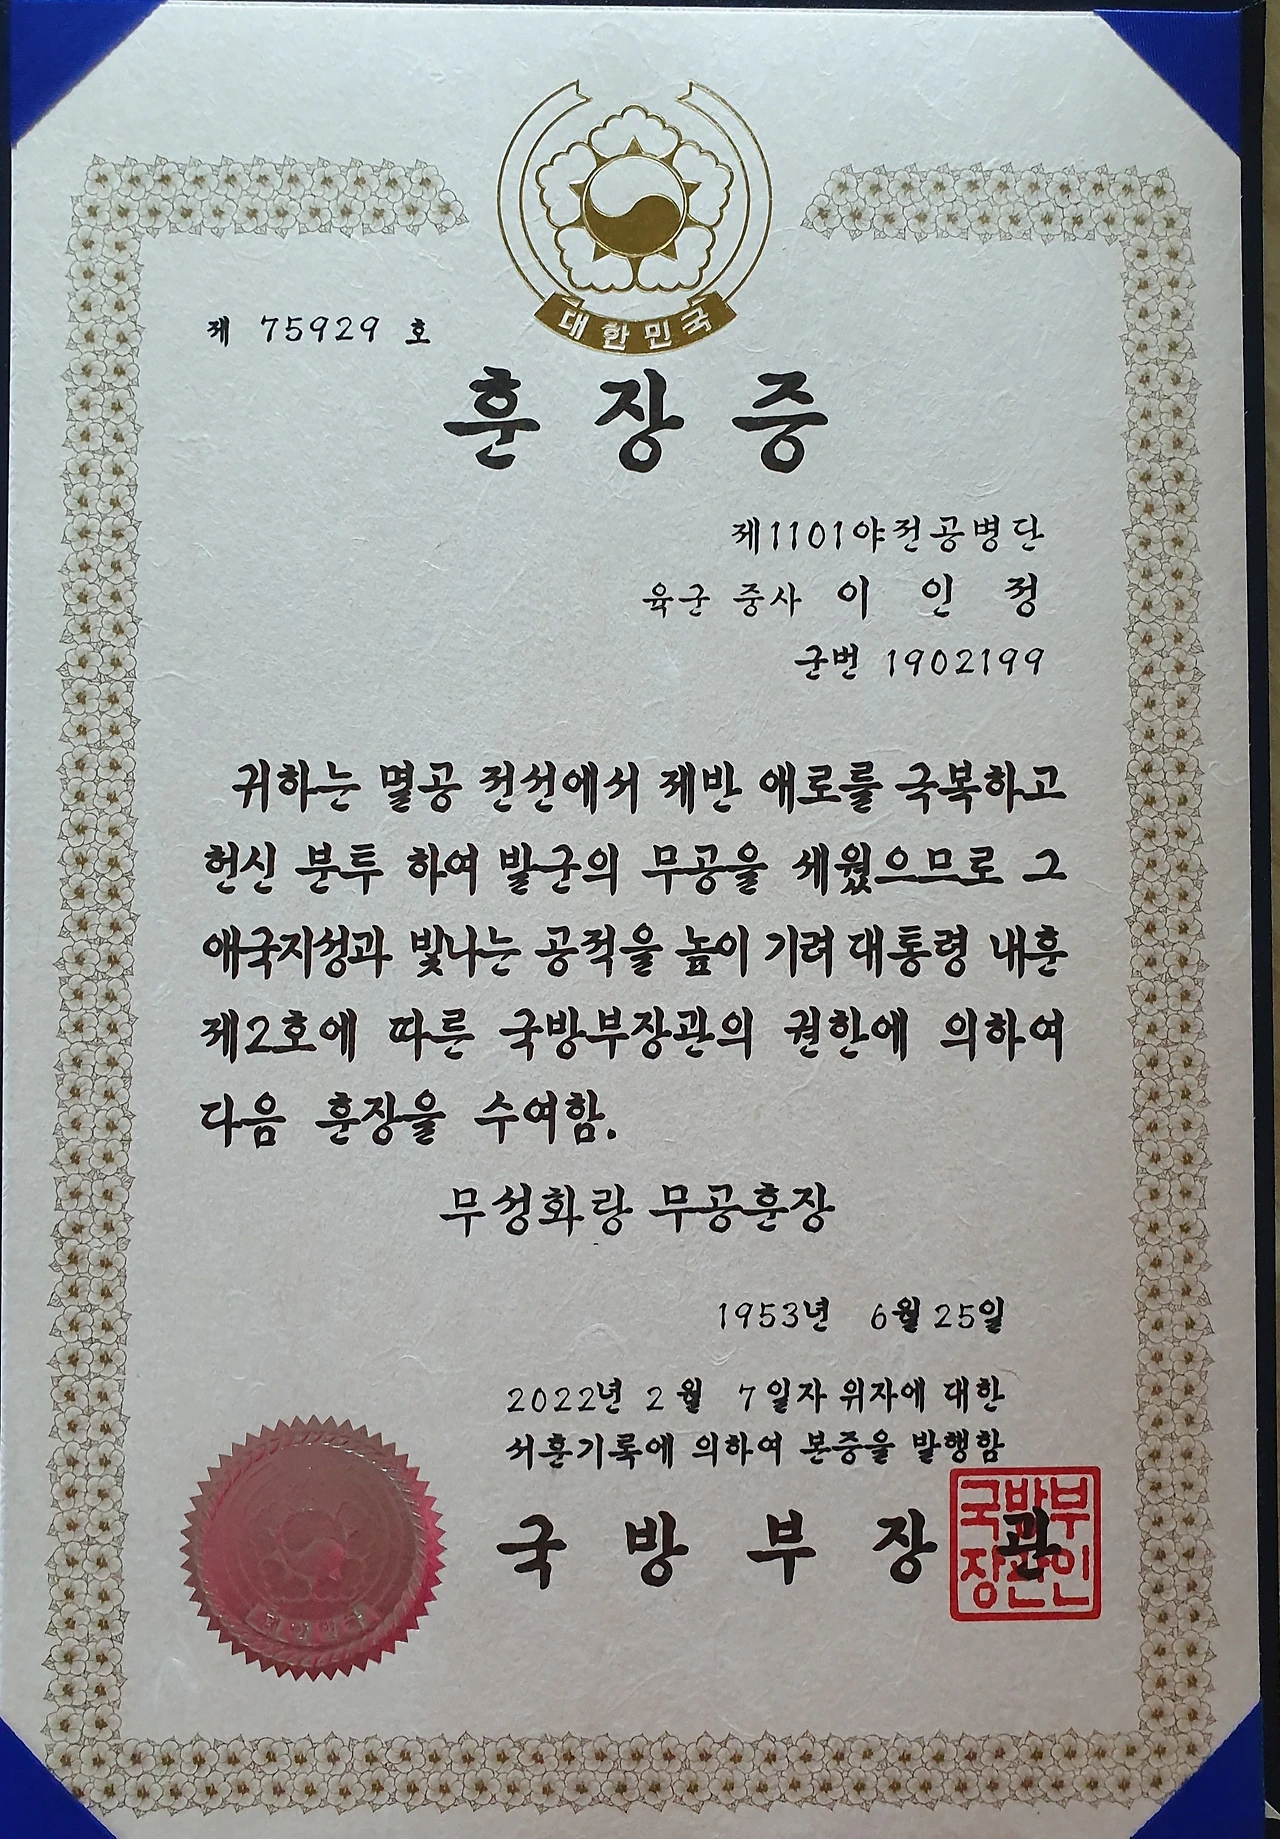 대한민국
제 75929 호
훈장증
제1101야전공병단
육군 중사 이 인 정
군번 1902199
귀하는 멸공 전선에서 제반 애로를 극복하고
헌신 분투 하여 발군의 무공을 세웠으므로 그
애국지성과 빛나는 공적을 높이 기려 대통령 내훈
제2호에 따른 국방부장관의 권한에 의하여
다음 훈장을 수여함.
무성화랑 무공훈장
1953년 6월 25일
2022년 2월 7일자 위자에 대한
서훈기록에 의하여 본증을 발행함
국 방 부 장 관
국방부
장관인
대한민국